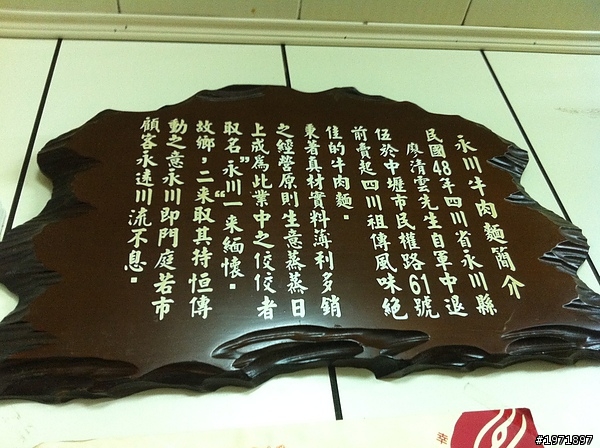 永川牛肉麵簡介
民國48年四川省永川縣
廖清雲先生自軍中退
伍於中壢市民權路61號
前賣起四川祖傳風味絕
佳的牛肉麵。
秉著真材實料薄利多銷
之經營原則生意蒸蒸日
上成為此業中之佼佼者
取名"永川"一來緬懷
故鄉,二來取其持恒傳
動之意永川即門庭若市
顧客永遠川流不息。
幸
#1971897